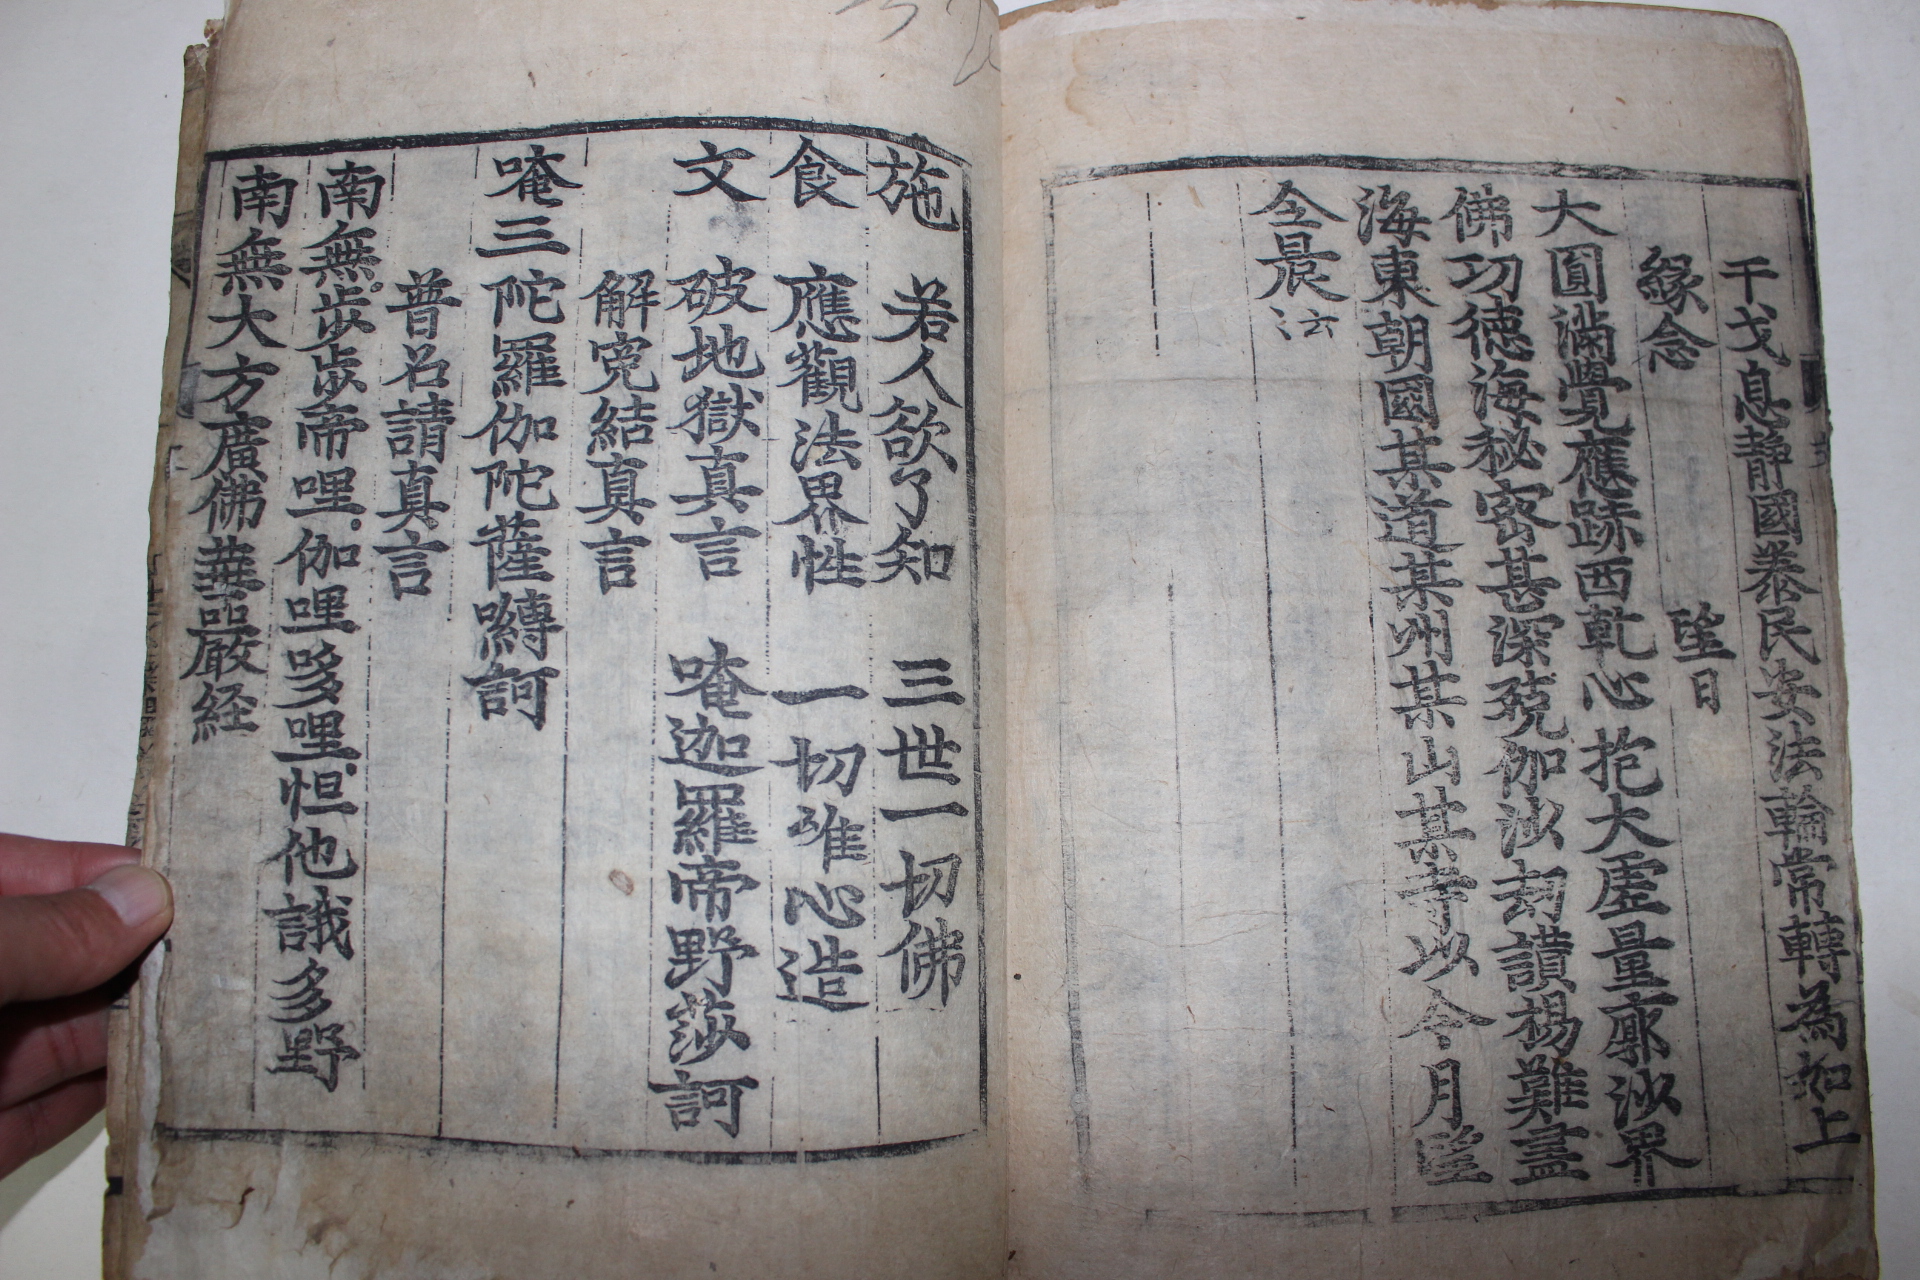 干戈息靜國泰民安法輪常轉為如上
緣念 望日
大圓滿覺應跡西乾心抱大虛量廓沙界
佛功德海秘密甚深殑伽沙刼讃楊難盡
海東朝國某道某州某山某寺以今月望
仝晨
施 若人欲了知 三世一切佛
食 應觀法界性 一切唯心造
文 破地獄真言 唵迦羅帝野莎訶
解寃結真言
唵三陀羅伽陀薩嚩訶
普召請真言
南無步步帝哩伽哩哆哩怛他誐多野
南無大方廣佛華嚴経